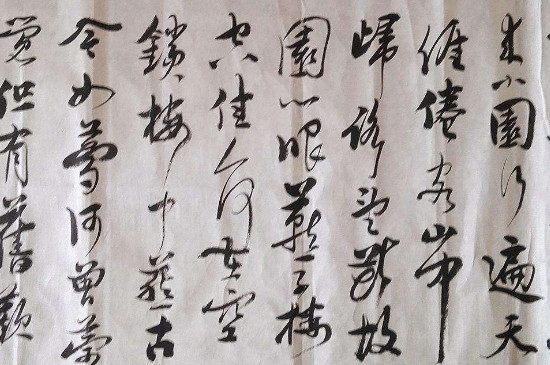 來小園行遍天
涯倦客山中
歸路望斷故
園心眼燕子樓
空佳人何在空
鎖樓中燕古
今如夢何曾夢
覺但有舊歡